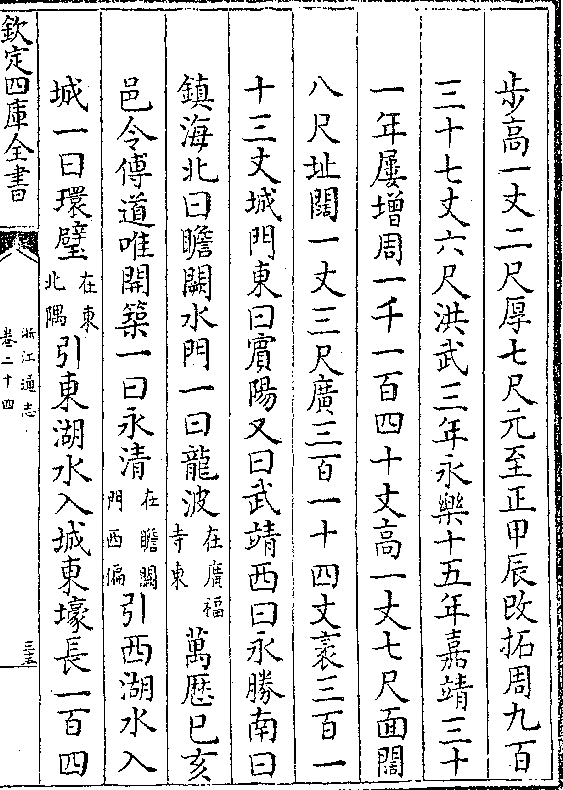 步高一丈二尺厚七尺元至正甲辰改拓周九百
三十七丈六尺洪武三年永樂十五年嘉靖三十
一年屢增周一千一百四十丈高一丈七尺面闊
八尺址闊一丈三尺廣三百一十四丈袤三百一
十三丈城門東曰賔陽又曰武靖西曰永勝南曰
鎮海北曰瞻闕水門一曰龍波在廣福寺東萬歴已亥
邑令傅道唯開築一曰永清在瞻闕門西偏引西湖水入
城一曰環璧在東北隅引東湖水入城東壕長一百四
欽定四庫全書
浙江通志
卷二十四
三五